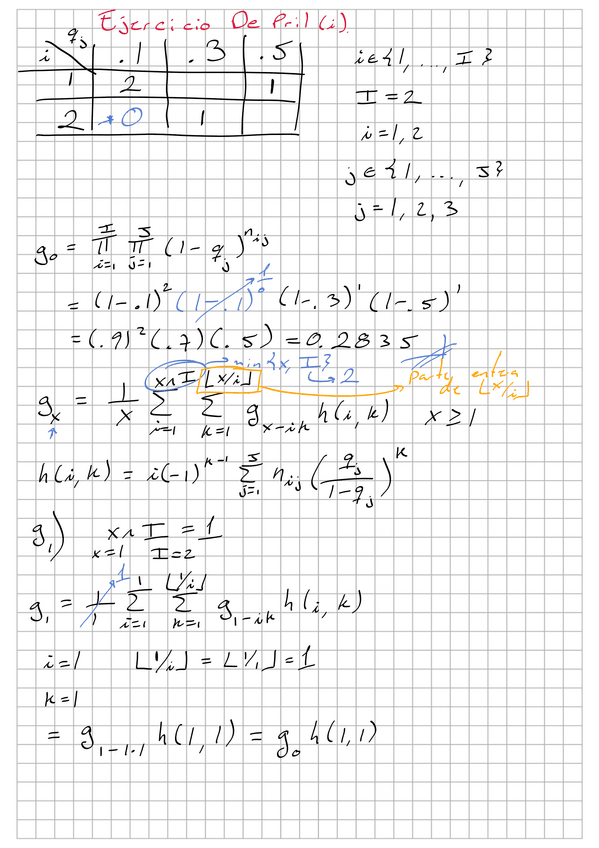 Ejercicio De Pril (i).
i \ q_j | .1 | .3 | .5
1 | 2 | | 1
2 | * 0 | 1 |
i ∈ {1, ..., I}
I = 2
i = 1, 2
j ∈ {1, ..., J}
j = 1, 2, 3
g_0 = ∏_{i=1}^{I} ∏_{j=1}^{J} (1 - q_j)^{n_{ij}}
= (1-.1)^2 (1-.1)^0 → 1 (1-.3)^1 (1-.5)^1
= (.9)^2 (.7) (.5) = 0.2835
→ min {x, I} ↳ 2
parte entera de ⌊x/i⌋
g_x = 1/x ∑_{i=1}^{x∧I} ∑_{k=1}^{⌊x/i⌋} g_{x-ik} h(i, k) x ≥ 1
h(i, k) = i(-1)^{k-1} ∑_{j=1}^{J} n_{ij} (q_j / (1-q_j))^k
g_1) x∧I = 1
x=1 I=2
g_1 = 1/1 → 1 ∑_{i=1}^{1} ∑_{k=1}^{⌊1/i⌋} g_{1-ik} h(i, k)
i=1 ⌊1/i⌋ = ⌊1/1⌋ = 1
k=1
= g_{1-1·1} h(1, 1) = g_0 h(1, 1)